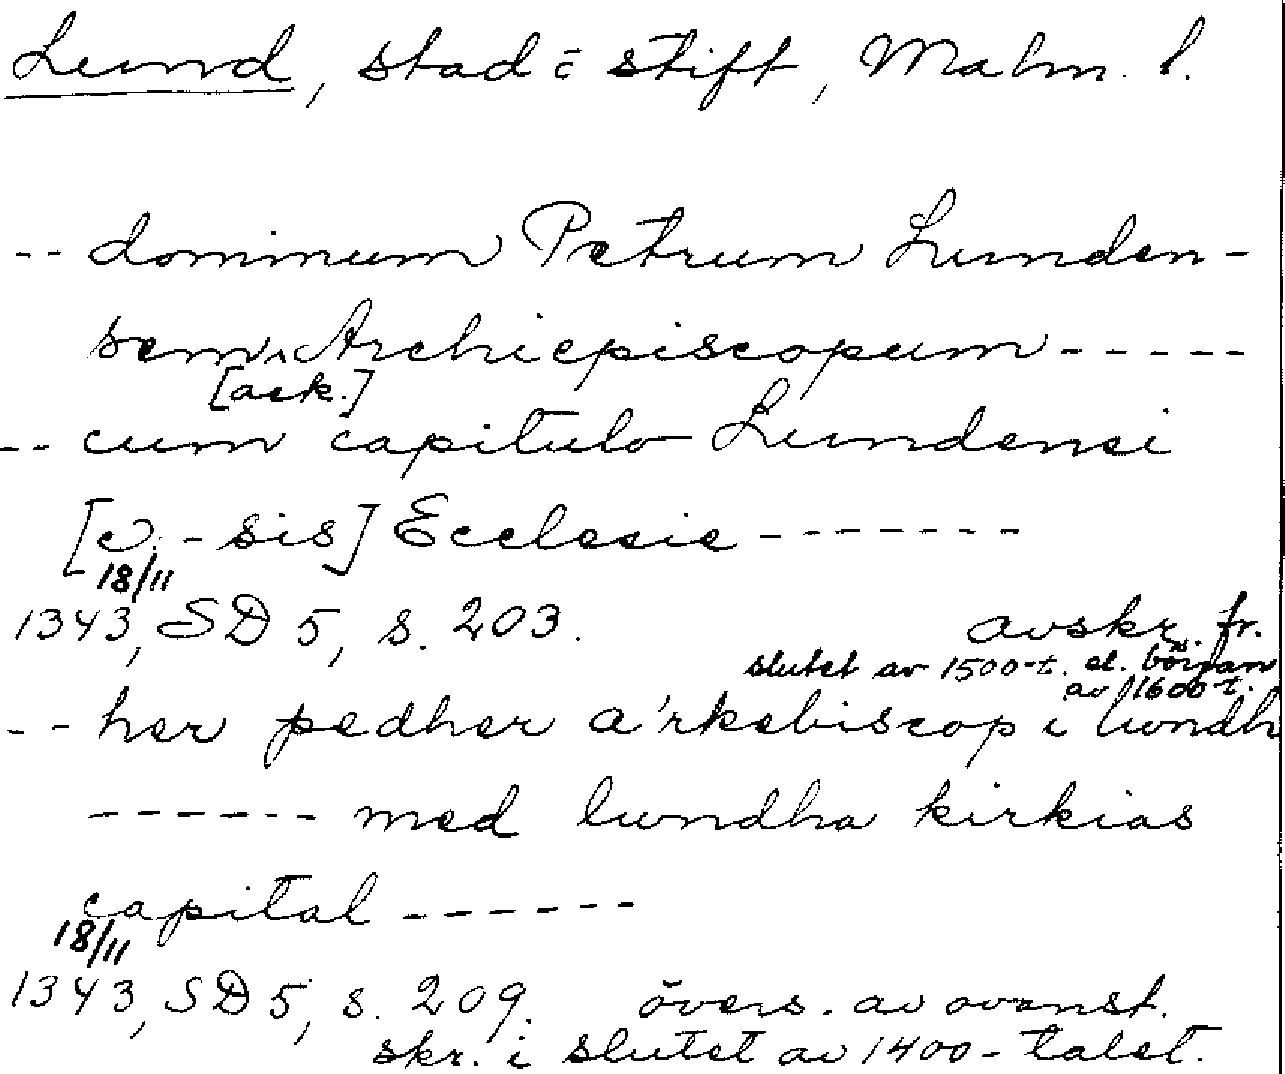 Lund, stad o. stift, Malm. l.
-- dominum Petrum Lunden-
sem Archiepiscopum -----
[ack.]
-- cum capitulo Lundensi
[o: -sis] Ecclesie -------
18/11
1343, SD 5, s. 203.
avskr. fr.
slutet av 1500-t. el. början
av 1600-t.
-- her pedher a'rkebiscop i lundh
------ med lundha kirkias
capital ------
18/11
1343, SD 5, s. 209. övers. av ovanst.
skr. i slutet av 1400-talet.